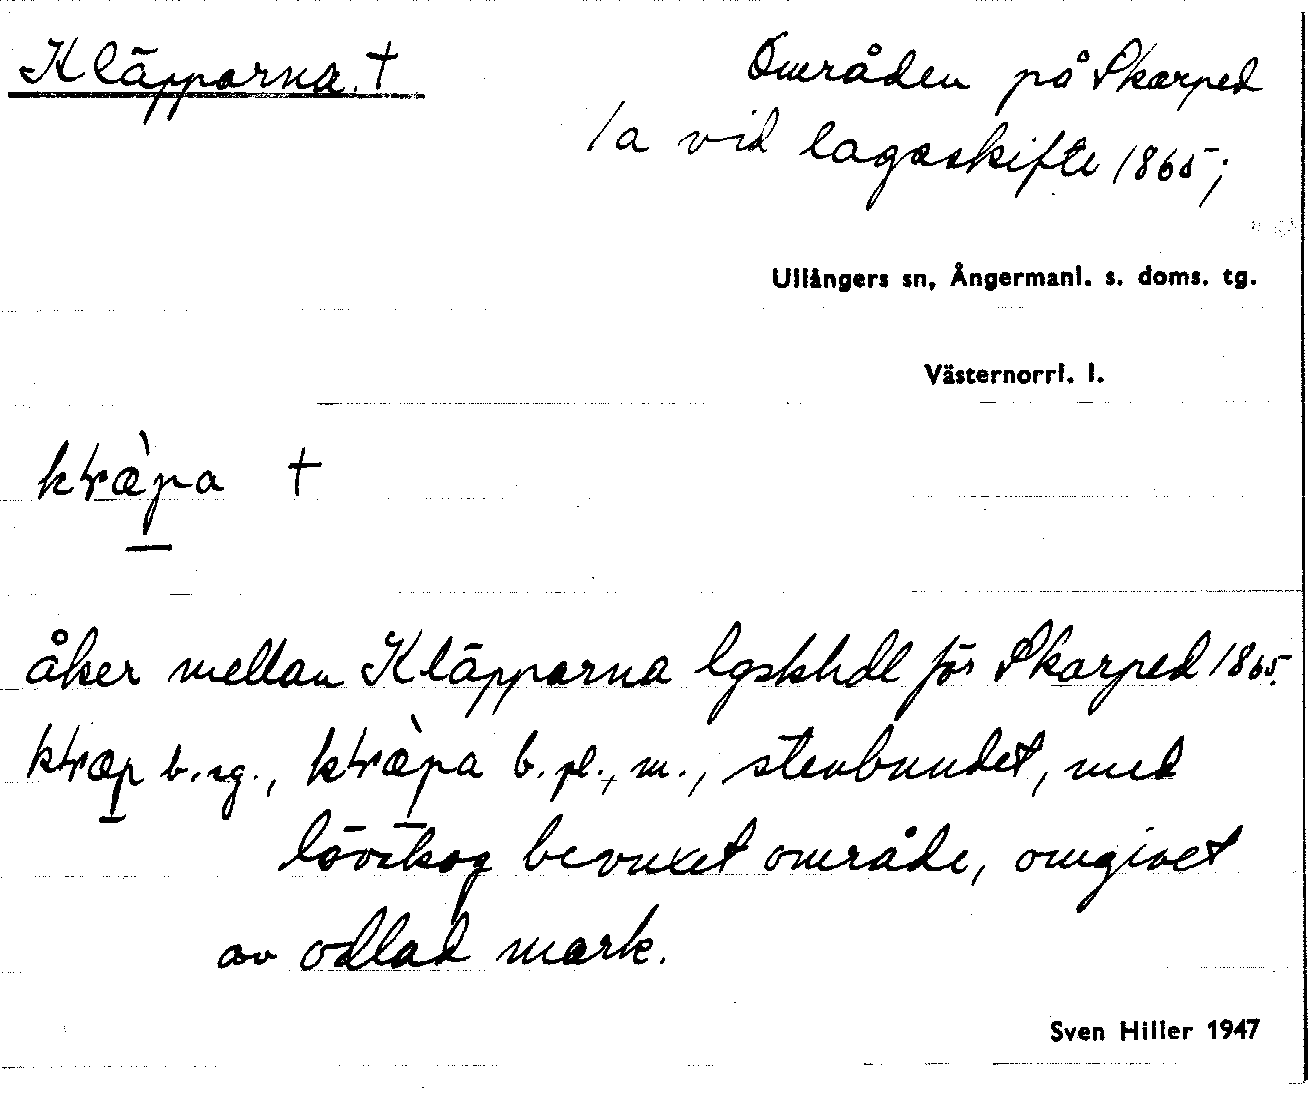 Kläpparna. †
Områden på Skarped
1a vid lagaskifte 1865;
Ullångers sn, Ångermanl. s. doms. tg.
Västernorrl. l.
†
åker mellan Kläpparna lgskhdl för Skarped 1865.
b. sg., b. pl., m., stenbundet, med
lövskog bevuxet område, omgivet
av odlad mark.
Sven Hiller 1947